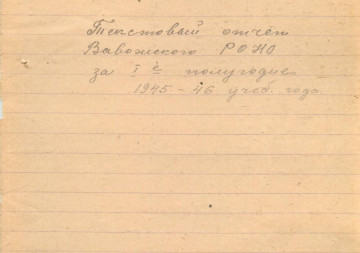 Текстовый отчёт
Вавожского РОНО
за I е полугодие
1945 – 46 учеб. года.